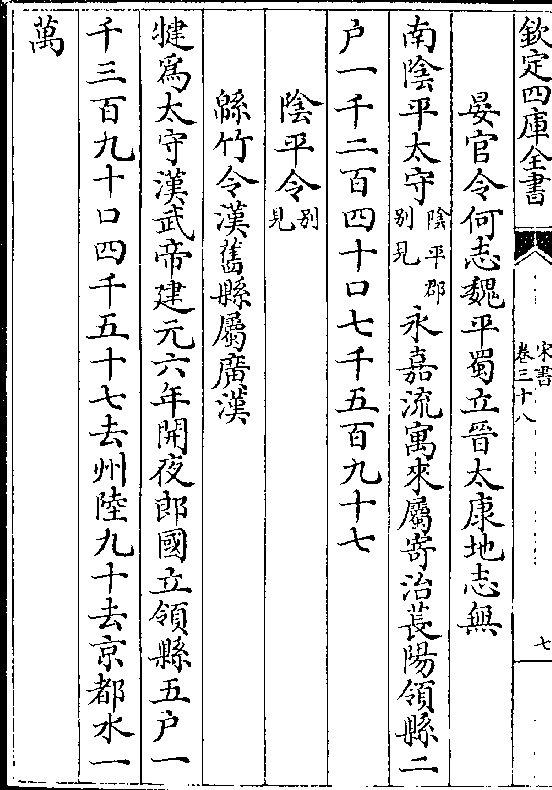 欽定四庫全書
宋書
卷三十八
七
晏官令何志魏平蜀立晉太康地志無
南陰平太守陰平郡别見永嘉流寓來屬寄治萇陽領縣二
户一千二百四十口七千五百九十七
陰平令别見
緜竹令漢舊縣屬廣漢
犍爲太守漢武帝建元六年開夜郎國立領縣五户一
千三百九十口四千五十七去州陸九十去京都水一
萬